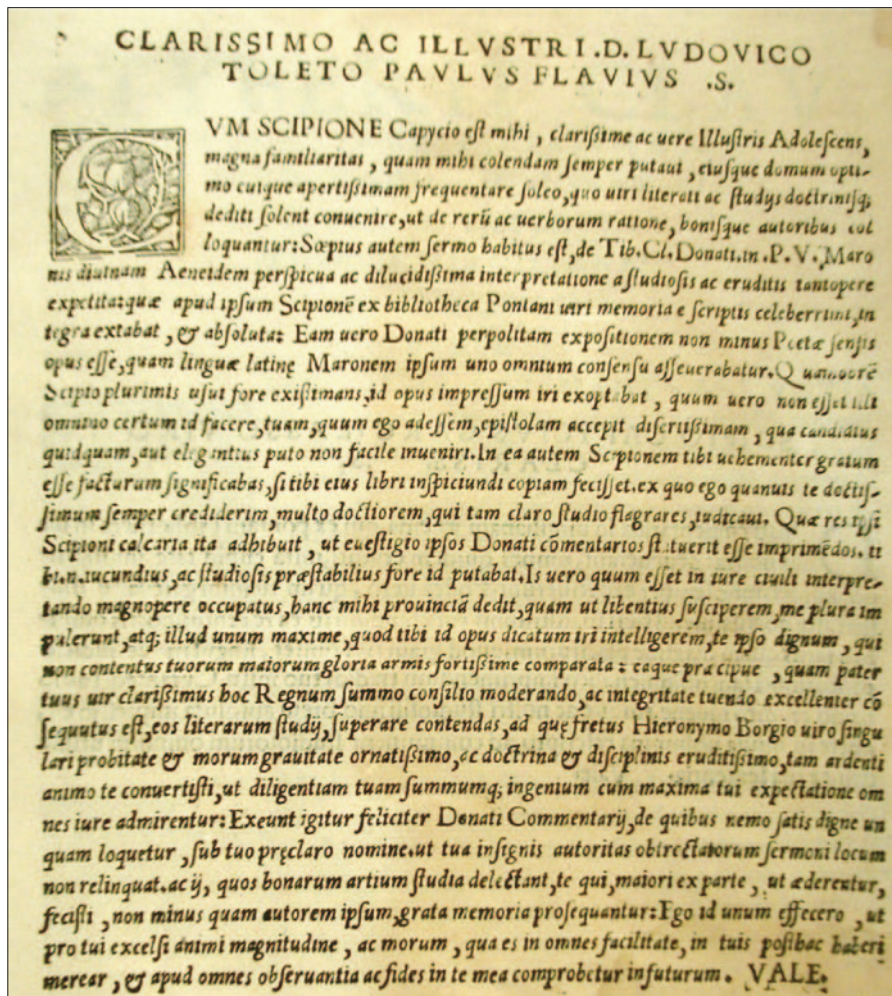 CLARISSIMO AC ILLVSTRI .D. LVDOVICO
TOLETO PAVLVS FLAVIVS .S.
CVM SCIPIONE Capycio eſt mihi, clariſsime ac uere Illuſtris Adoleſcens,
magna familiaritas, quam mihi colendam ſemper putaui, eiuſque domum opti-
mo cuique apertiſsimam frequentare ſoleo, quo uiri literati ac ſtudijs doctriniſq;
dediti ſolent conuenire, ut de rerū ac uerborum ratione, boniſque autoribus col
loquantur: Sæpius autem ſermo habitus eſt, de Tib. Cl. Donati .in .P. V. Maro
nis diuinam Aeneidem perſpicua ac dilucidiſsima interpretatione a ſtudioſis ac eruditis tantopere
expetita: quæ apud ipſum Scipionē ex bibliotheca Pontani uiri memoria e ſcriptis celeberrimi, in
tegra extabat, & abſoluta: Eam uero Donati perpolitam expoſitionem non minus Poetæ ſenſis
opus eſſe, quam linguæ latinę Maronem ipſum uno omnium conſenſu aſſeuerabatur. Quamobrē
Scipio plurimis uſui fore exiſtimans, id opus impreſſum iri exoptabat, quum uero non eſſet illi
omnino certum id facere, tuam, quum ego adeſſem, epiſtolam accepit diſertiſsimam, qua candidius
quidquam, aut elegantius puto non facile inueniri. In ea autem Scipionem tibi uehementer gratum
eſſe facturum ſignificabas, ſi tibi eius libri inſpiciundi copiam feciſſet. ex quo ego quanuis te doctiſ-
ſimum ſemper crediderim, multo doctiorem, qui tam claro ſtudio flagrares, iudicaui. Quæ res ipſi
Scipioni calcaria ita adhibuit, ut eueſtigio ipſos Donati cōmentarios ſtatuerit eſſe imprimēdos. ti
bi n. iucundius, ac ſtudioſis præſtabilius fore id putabat. Is uero quum eſſet in iure ciuili interpre-
tando magnopere occupatus, hanc mihi prouinciā dedit, quam ut libentius ſuſciperem, me plura im
pulerunt, atq; illud unum maxime, quod tibi id opus dicatum iri intelligerem, te ipſo dignum, qui
non contentus tuorum maiorum gloria armis fortiſsime comparata: eaque præcipue, quam pater
tuus uir clariſsimus hoc Regnum ſummo conſilio moderando, ac integritate tuendo excellenter cō
ſequutus eſt, eos literarum ſtudij, ſuperare contendas, ad quę fretus Hieronymo Borgio uiro ſingu
lari probitate & morum grauitate ornatiſsimo, ac doctrina & diſciplinis eruditiſsimo, tam ardenti
animo te conuertiſti, ut diligentiam tuam ſummumq; ingenium cum maxima tui expectatione om
nes iure admirentur: Exeunt igitur feliciter Donati Commentarij, de quibus nemo ſatis digne un
quam loquetur, ſub tuo pręclaro nomine. ut tua inſignis autoritas obtrectatorum ſermoni locum
non relinquat. ac ij, quos bonarum artium ſtudia delectant, te qui, maiori ex parte, ut æderentur,
feciſti, non minus quam autorem ipſum, grata memoria proſequantur: Ego id unum effecero, ut
pro tui excelſi animi magnitudine, ac morum, qua es in omnes facilitate, in tuis poſthac haberi
merear, & apud omnes obſeruantia ac fides in te mea comprobetur infuturum. VALE.